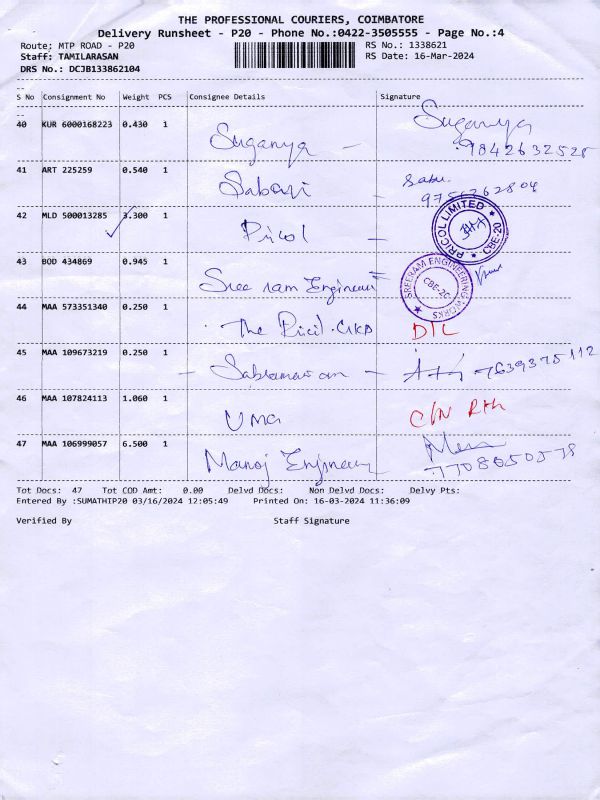 THE PROFESSIONAL COURIERS, COIMBATORE
Delivery Runsheet - P20 - Phone No.:0422-3505555 - Page No.:4
Route: MTP ROAD - P20 RS No.: 1338621
Staff: TAMILARASAN RS Date: 16-Mar-2024
DRS No.: DCJB133862104
S No Consignment No Weight PCS Consignee Details Signature
40 KUR 6000168223 0.430 1 Suganya - Suganya
9842632525
41 ART 225259 0.540 1 Sabari - Sabu.
42 MLD 500013285 3.300 1 Pricol - PRICOL LIMITED CBE-20
43 BOD 434869 0.945 1 Sree ram Engineer SREERAM ENGINEERING WORKS CBE-20
44 MAA 573351340 0.250 1 The
45 MAA 109673219 0.250 1 - 7639375112
46 MAA 107824113 1.060 1 Uma C/N
47 MAA 106999057 6.500 1 Manoj
7708050578
Tot Docs: 47 Tot COD Amt: 0.00 Delvd Docs: Non Delvd Docs: Delvy Pts:
Entered By :SUMATHIP20 03/16/2024 12:05:49 Printed On: 16-03-2024 11:36:09
Verified By Staff Signature